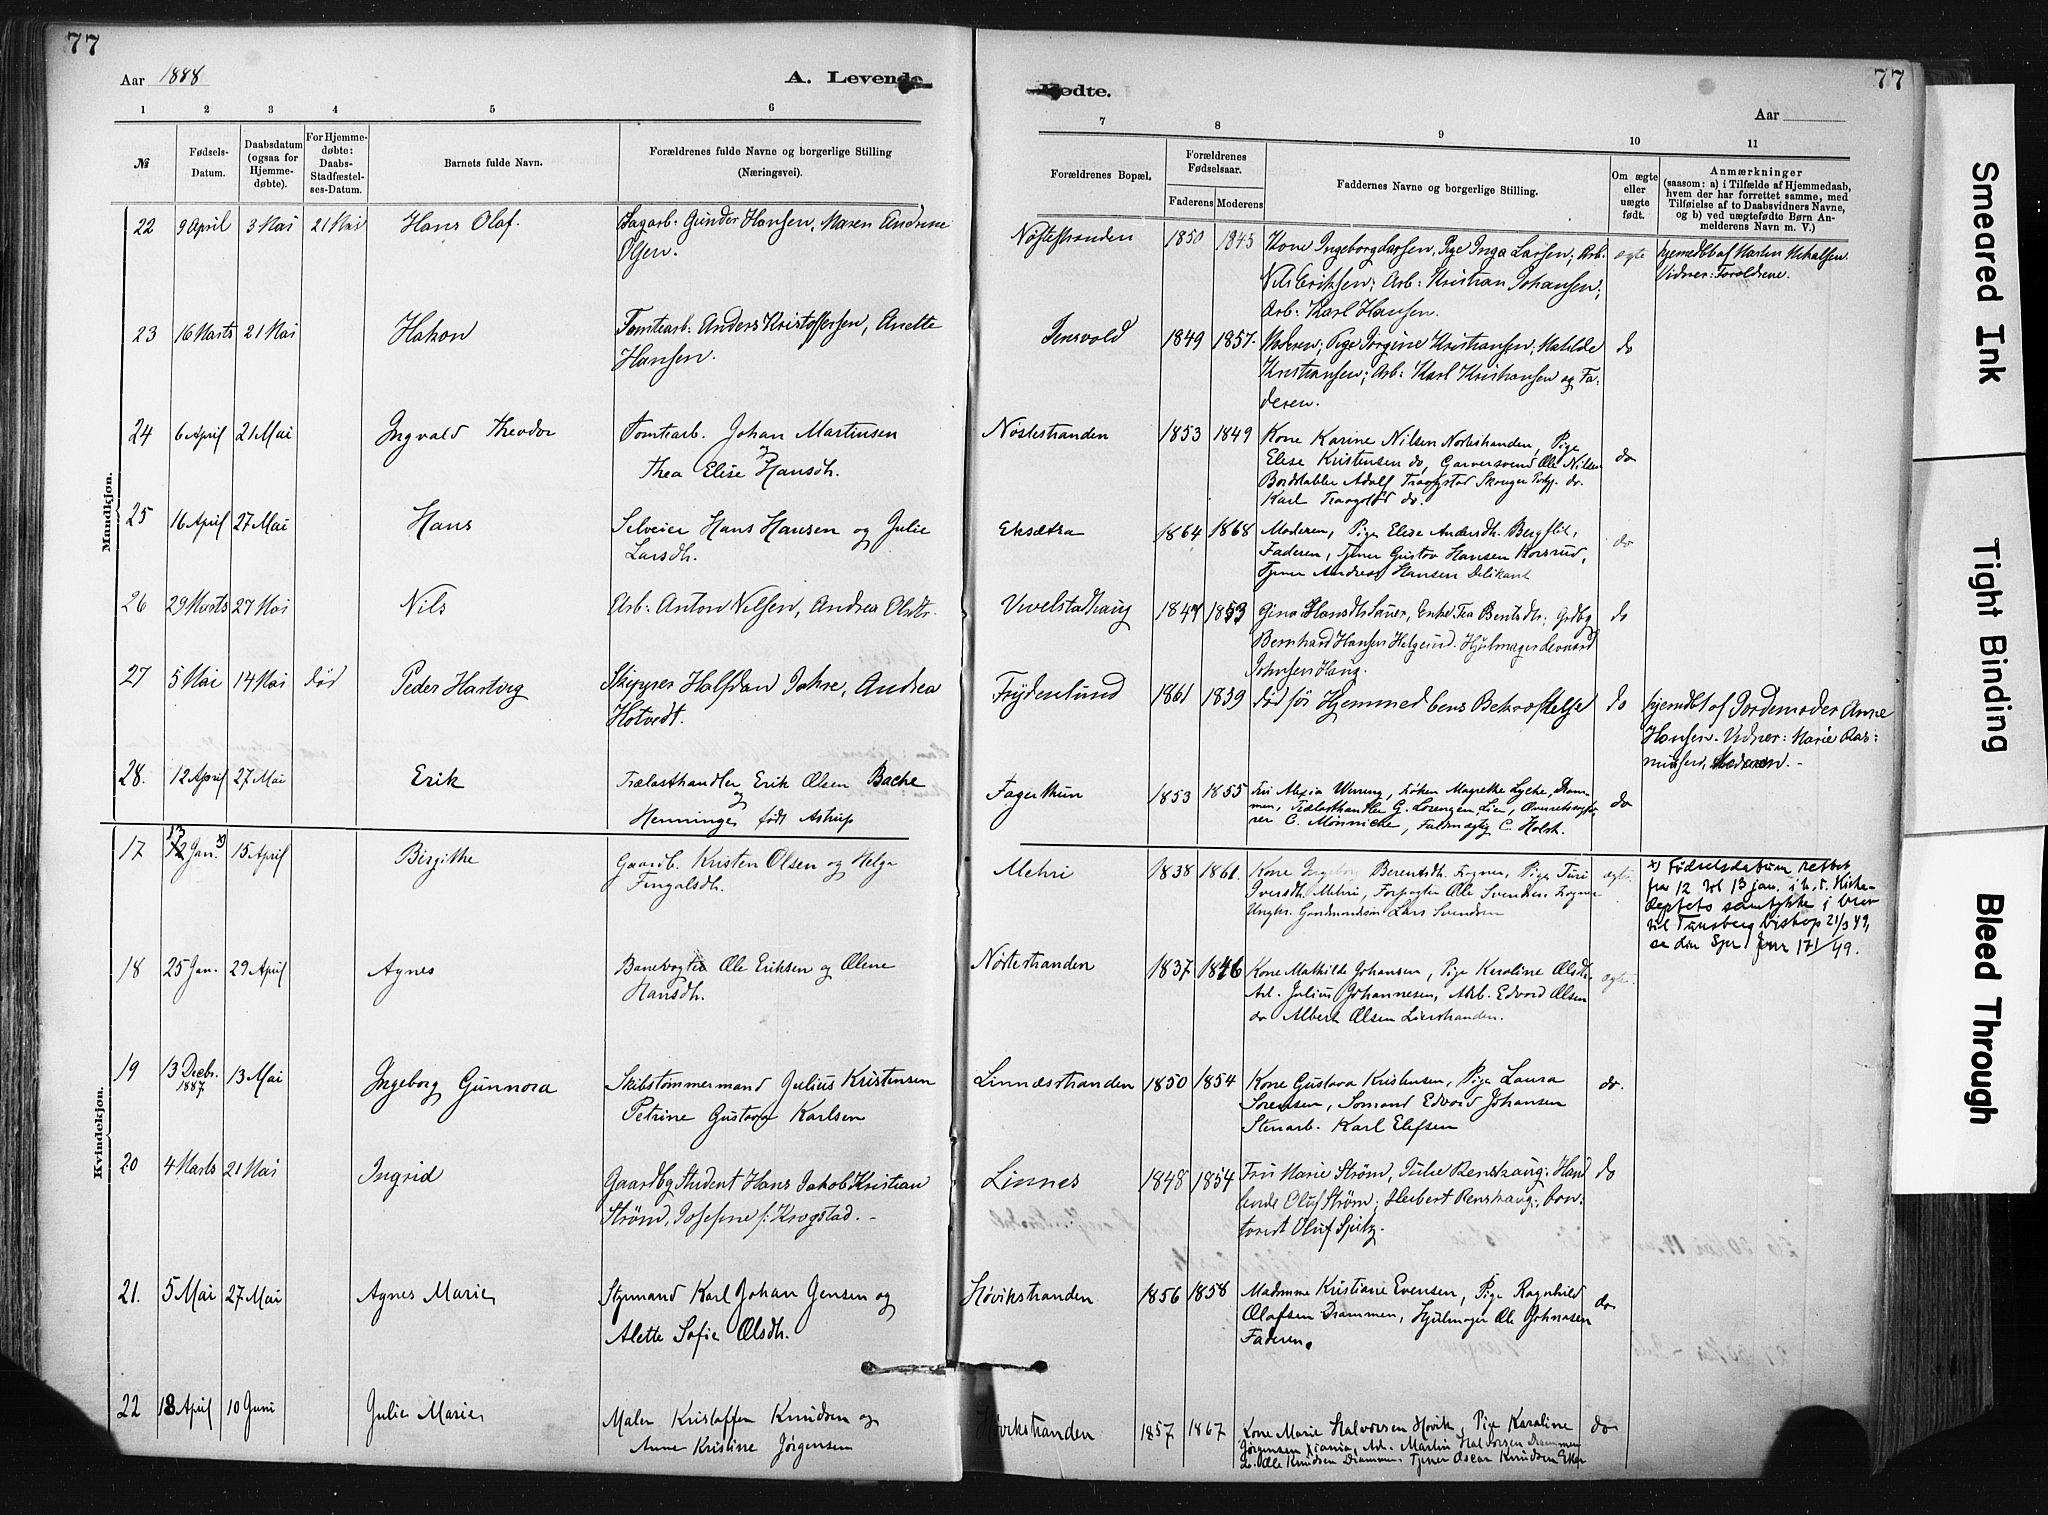 77
77
Aar 1888
A. Levende
Fødte.
Aar
1 2 3 4 5 6 7 8 9 10 11
№
Fødsels-
Datum.
Daabsdatum
(ogsaa for
Hjemme-
døbte).
For Hjemme-
døbte:
Daabs-
Stadfæstel-
ses-Datum.
Barnets fulde Navn.
Forældrenes fulde Navne og borgerlige Stilling
(Næringsvei).
Forældrenes Bopæl.
Forældrenes
Fødselsaar.
Faderens Moderens
Faddernes Navne og borgerlige Stilling.
Om ægte
eller
uægte
født.
Anmærkninger
(saasom: a) i Tilfælde af Hjemmedaab,
hvem der har forrettet samme, med
Tilføielse af to Daabsvidners Navne,
og b) ved uægtefødte Børn An-
melderens Navn m. V.)
Mandkjøn.
22 9 April 3 Mai 21 Mai Hans Olaf. Sagarb. Gunder Hansen, Maren Andrine
Olsen.
Nøstestranden 1850 1845 Kone Ingeborg Larsen, Pige Inga Larsen, Arb.
Nils Eriksen; Arb: Kristian Johansen;
Arb: Karl Hansen.
ægte
hjemedbt af Martin Mikalsen.
Vidner: Forældrene.
23 16 Marts 21 Mai Hakon Tomtearb: Anders Kristoffersen, Anette
Hansen.
Jensvold 1849 1857. Moderen; Pige Jørgine Kristiansen; Matilde
Kristiansen; Arb: Karl Kristiansen og Fa-
deren.
do
24 6 April 21 Mai Ingvald Theodor Tomtearb. Johan Martinsen
og
Thea Elise Hansdh.
Nøstestranden 1853 1849 Kone Karine Nilsen Nøstestranden, Pige
Elise Kristensen do, Garversvend Ole Nilsen
Bordstabler Adolf
Karl do.
do
25 16 April 27 Mai Hans Selveier Hans Hansen og Julie
Larsdh.
Eksætra 1864 1868 Moderen, Pige Elise Andersdh. Bergflit,
Faderen, Tjener Gustav Hansen Korsrud,
Tjener Andreas Hansen Delikant
do
26 29 Marts 27 Mai Nils Arb: Anton Nilsen, Andrea Olsdtr.
Uvelstadhaug 1847 1853 Gina Hansdtr Sauer, Enke Tea Bentsdtr; Grdbg
Bernhard Hansen Helgerud. Hjulmager
Johnsen Haug.
do
27 5 Mai 14 Mai død Peder Hartvig Skipper Halfdan Jahre, Andrea
Hotvedt.
Frydenlund 1861 1859 død før Hjemmedaabens Bekræftelse do
hjemdbt af Jordemoder Anne
Hansen. Vidner: Marie Ras-
mussen, Moderen. -
28. 12 April 27 Mai Erik Trælasthandler Erik Olsen Bache
og
Henninge født Astrup
Fagerthun 1853 1855 Fru Alexia Wrrung, Frøken Magrethe Lyche, Dram-
men, Trælasthandler G. Lorengen, Lier,
C. Mønniche, Fuldmægtig C. Holst.
do
Kvindekjøn.
17 13 Jan. x) 15 April Birgithe Gaardb. Kristen Olsen og Helga
Fingalsdh.
Mehri 1838 1861. Kone Ingeborg Berentsdh. Fogner, Pige Turi
Iversdh. Mehri, Forpagter Ole Svendsen Fogner
Ungkr. Gaardmandssøn Lars Svendsen
ægte.
x) Fødselsdatum rettet
fra 12 til 13 jan. i h. t. Kirke-
deptets samtykke i brev
til Tunsberg biskop 21/3 49,
se din Spr Jour 171/49.
18 25 Jan. 29 April Agnes Banevogter Ole Eriksen og Olene
Hansdh.
Nøstestranden 1837 1846 Kone Mathilde Johansen, Pige Karoline Olsdh.
Arb. Julius Johannesen, Arb. Edvard Olsen
do Albert Olsen Lierstranden.
ægte.
19 13 Decbr.
1887
13 Mai Ingeborg Gunnora Skibstømmermand Julius Kristensen
Petrine Gustava Karlsen
Linnesstranden 1850 1854 Kone Gustava Kristensen, Pige Laura
Sørensen, Sømand Edvard Johansen
Stenarb. Karl Elefsen
do.
20 4 Marts 21 Mai Ingrid Gaardbg Student Hans Jakob Kristian
Strøm, Josefine f: Krogstad. -
Linnes 1848 1854 Fru Marie Strøm, Julie Renskaug; Hand-
lende Oluf Strøm; Herbert Renskaug; Con-
torist Oluf Spitz.
do
21. 5 Mai 27 Mai Agnes Marie Styrmand Karl Johan Jensen og
Alette Sofie Olsdh.
Høvikstranden 1856 1858 Madamme Kristiane Evensen, Pige Ragnhild
Olafsen Drammen, Hjulmager Ole Johnasen
Faderen.
do
22 18 April 10 Juni Julie Marie Maler Kristoffen Knudsen og
Anne Kristine Jørgensen
Høvikstranden 1857 1867 Kone Marie Halvorsen Høvik, Pige Karoline
Jørgensen Xiania, Arb. Martin Halvorsen Drammen
Ole Knudsen Drammen, Tjener Oscar Knudsen Eker
do
Smeared Ink
Tight Binding
Bleed Through